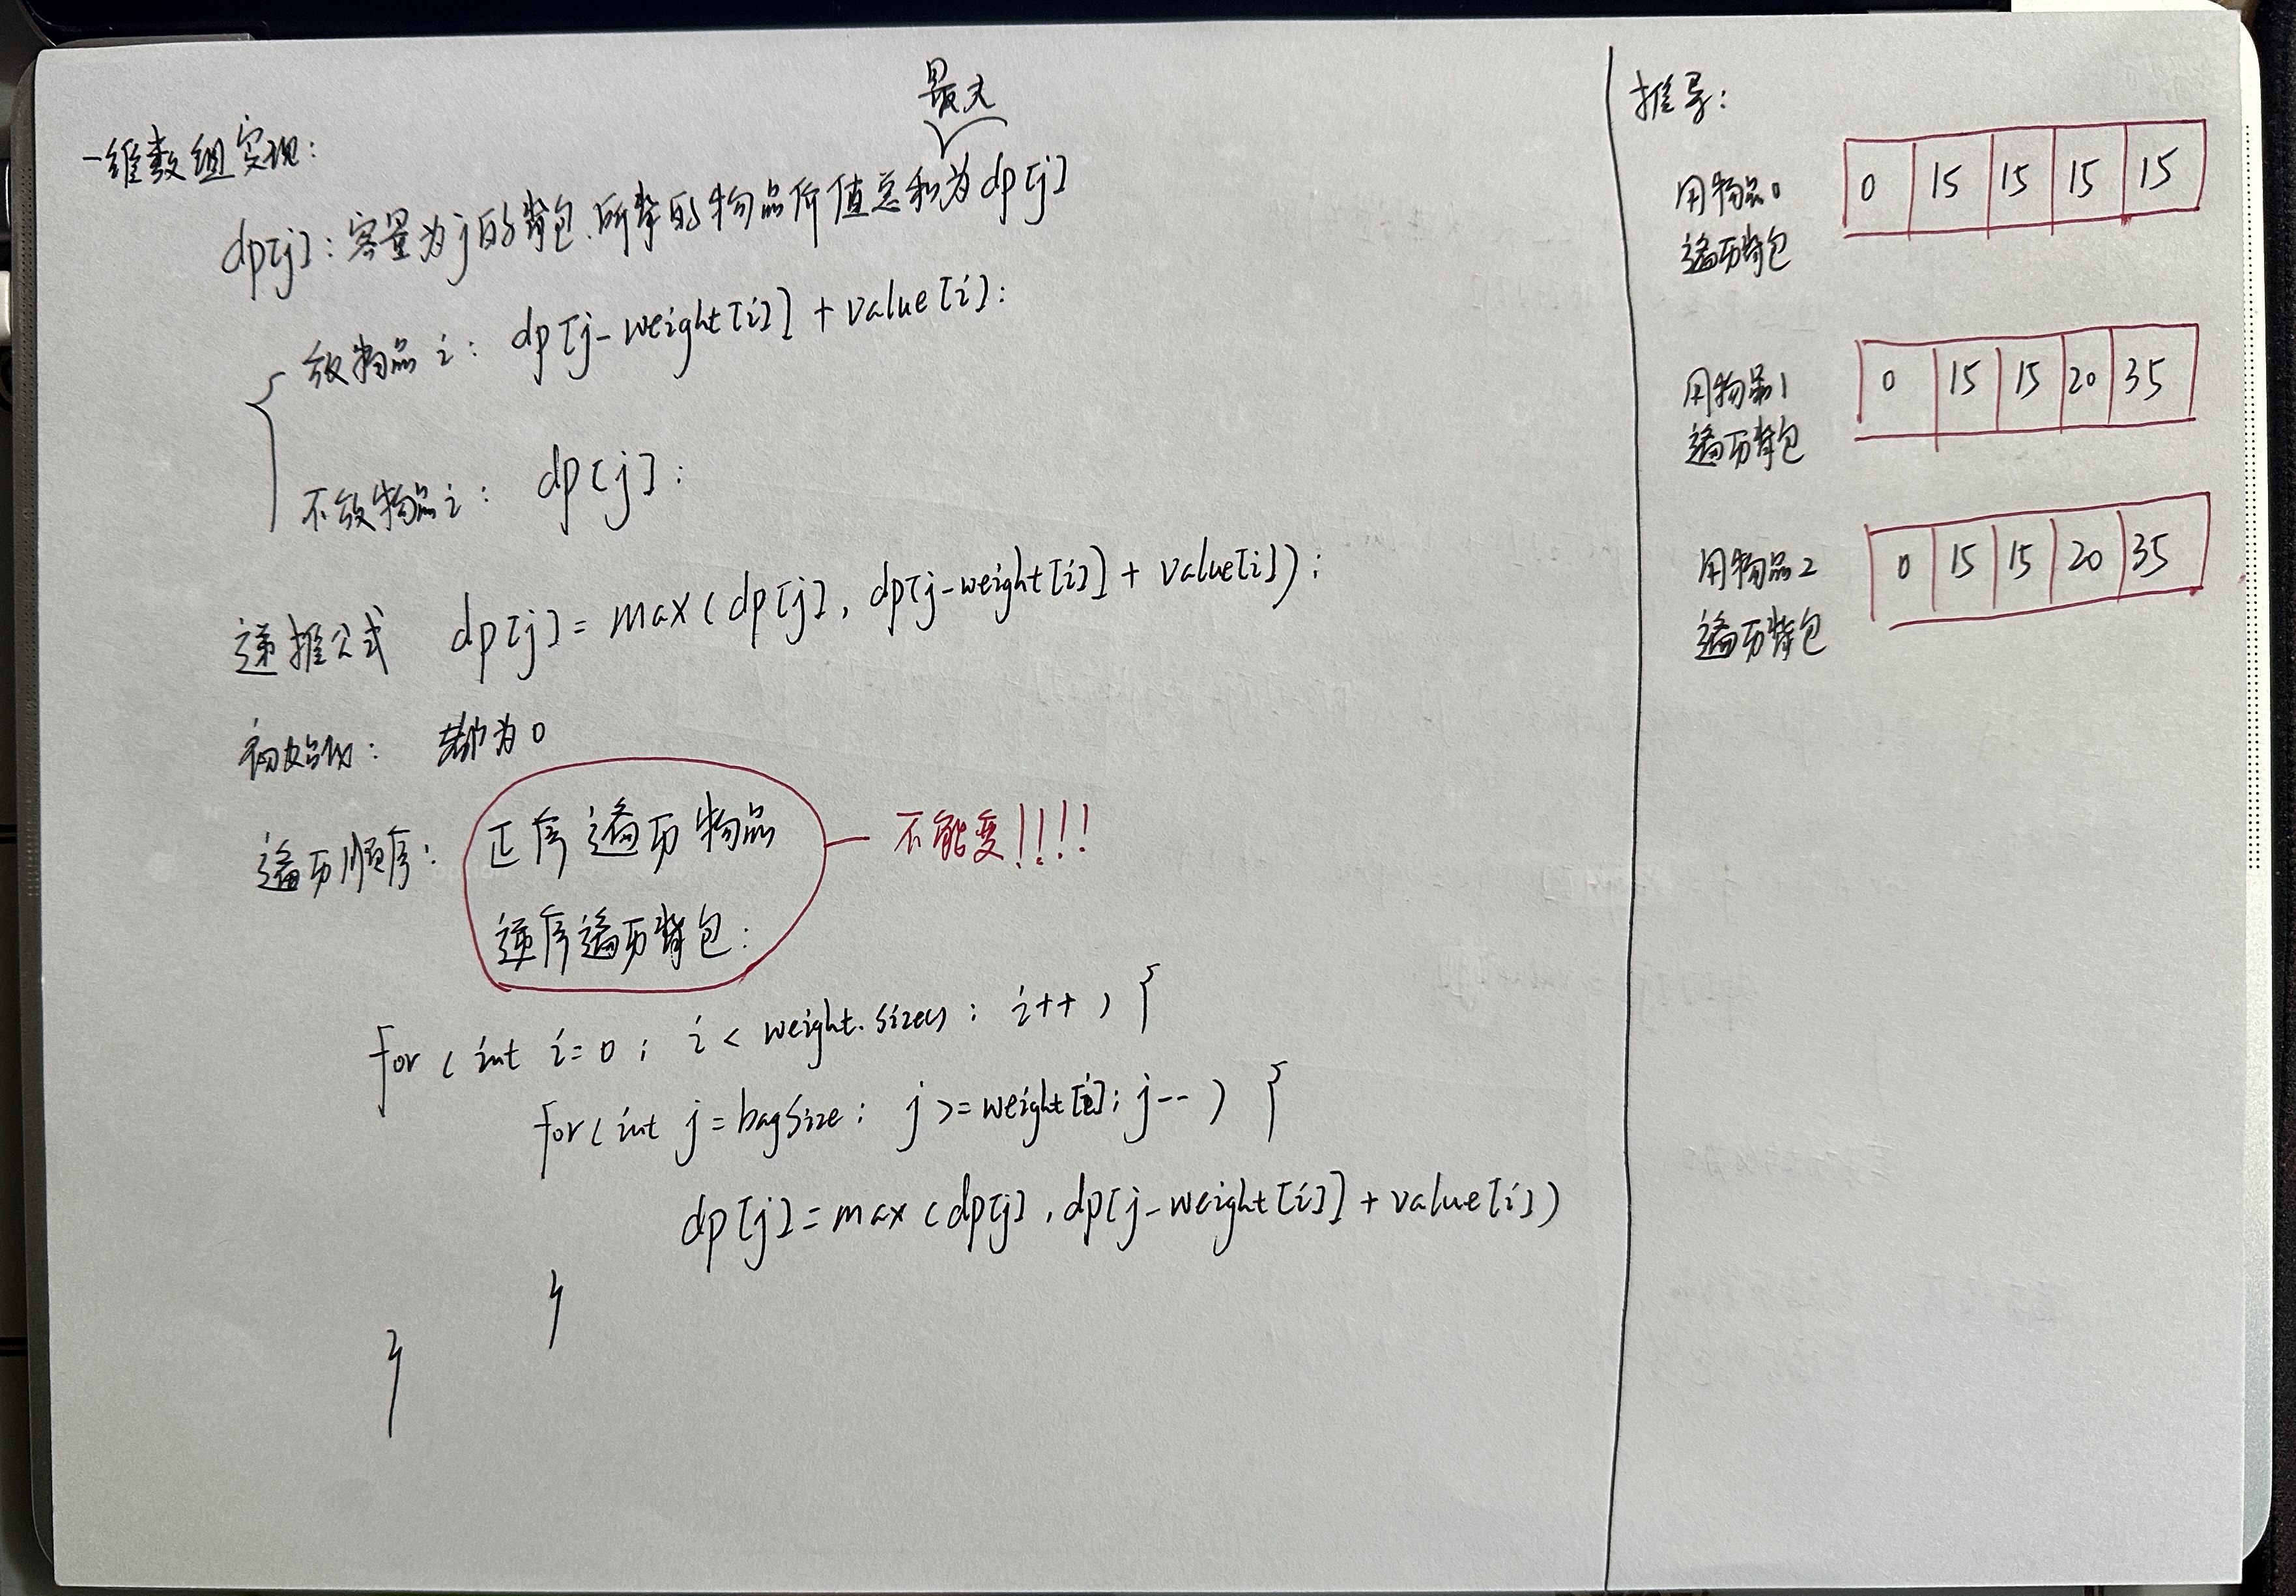 一维数组实现:
最大
dp[j]:容量为j的背包,所背的物品价值总和为dp[j]
放物品i: dp[j-weight[i]]+value[i];
不放物品i: dp[j];
递推公式 dp[j]=max(dp[j],dp[j-weight[i]]+value[i]);
初始化: 都为0
遍历顺序: 正序遍历物品 — 不能变!!!!
逆序遍历背包;
for(int i=0; i<weight.size(); i++){
for(int j=bagSize; j>=weight[i]; j--){
dp[j]=max(dp[j],dp[j-weight[i]]+value[i])
}
}
推导:
用物品0
遍历背包
0 15 15 15 15
用物品1
遍历背包
0 15 15 20 35
用物品2
遍历背包
0 15 15 20 35